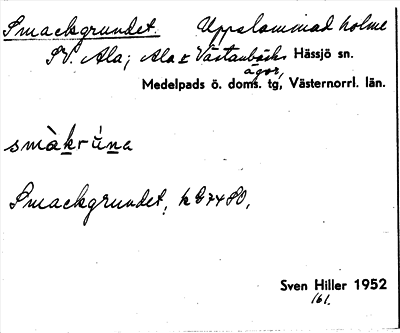 Smackgrundet. Uppslammad holme
SV. Ala; Ala o Västanbäcks Hässjö sn.
ägor,
Medelpads ö. doms. tg, Västernorrl. län.
smàkrúna
Smackgrundet,
Sven Hiller 1952
161.